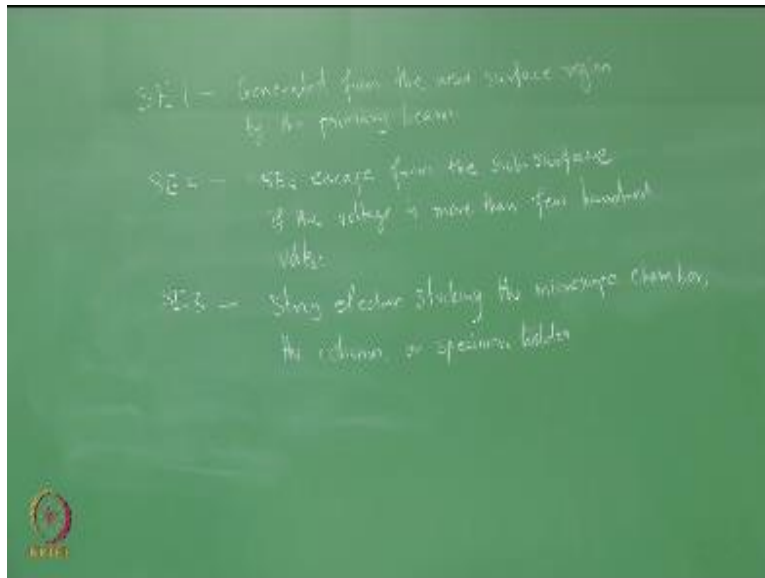 SE1 - Generated from the near surface region
by the primary beam
SE2 - SEs escape from the sub-surface
if the voltage is more than few hundred
volts.
SE3 - Stray electron striking the microscope chamber,
the column or specimen holder
NPTEL